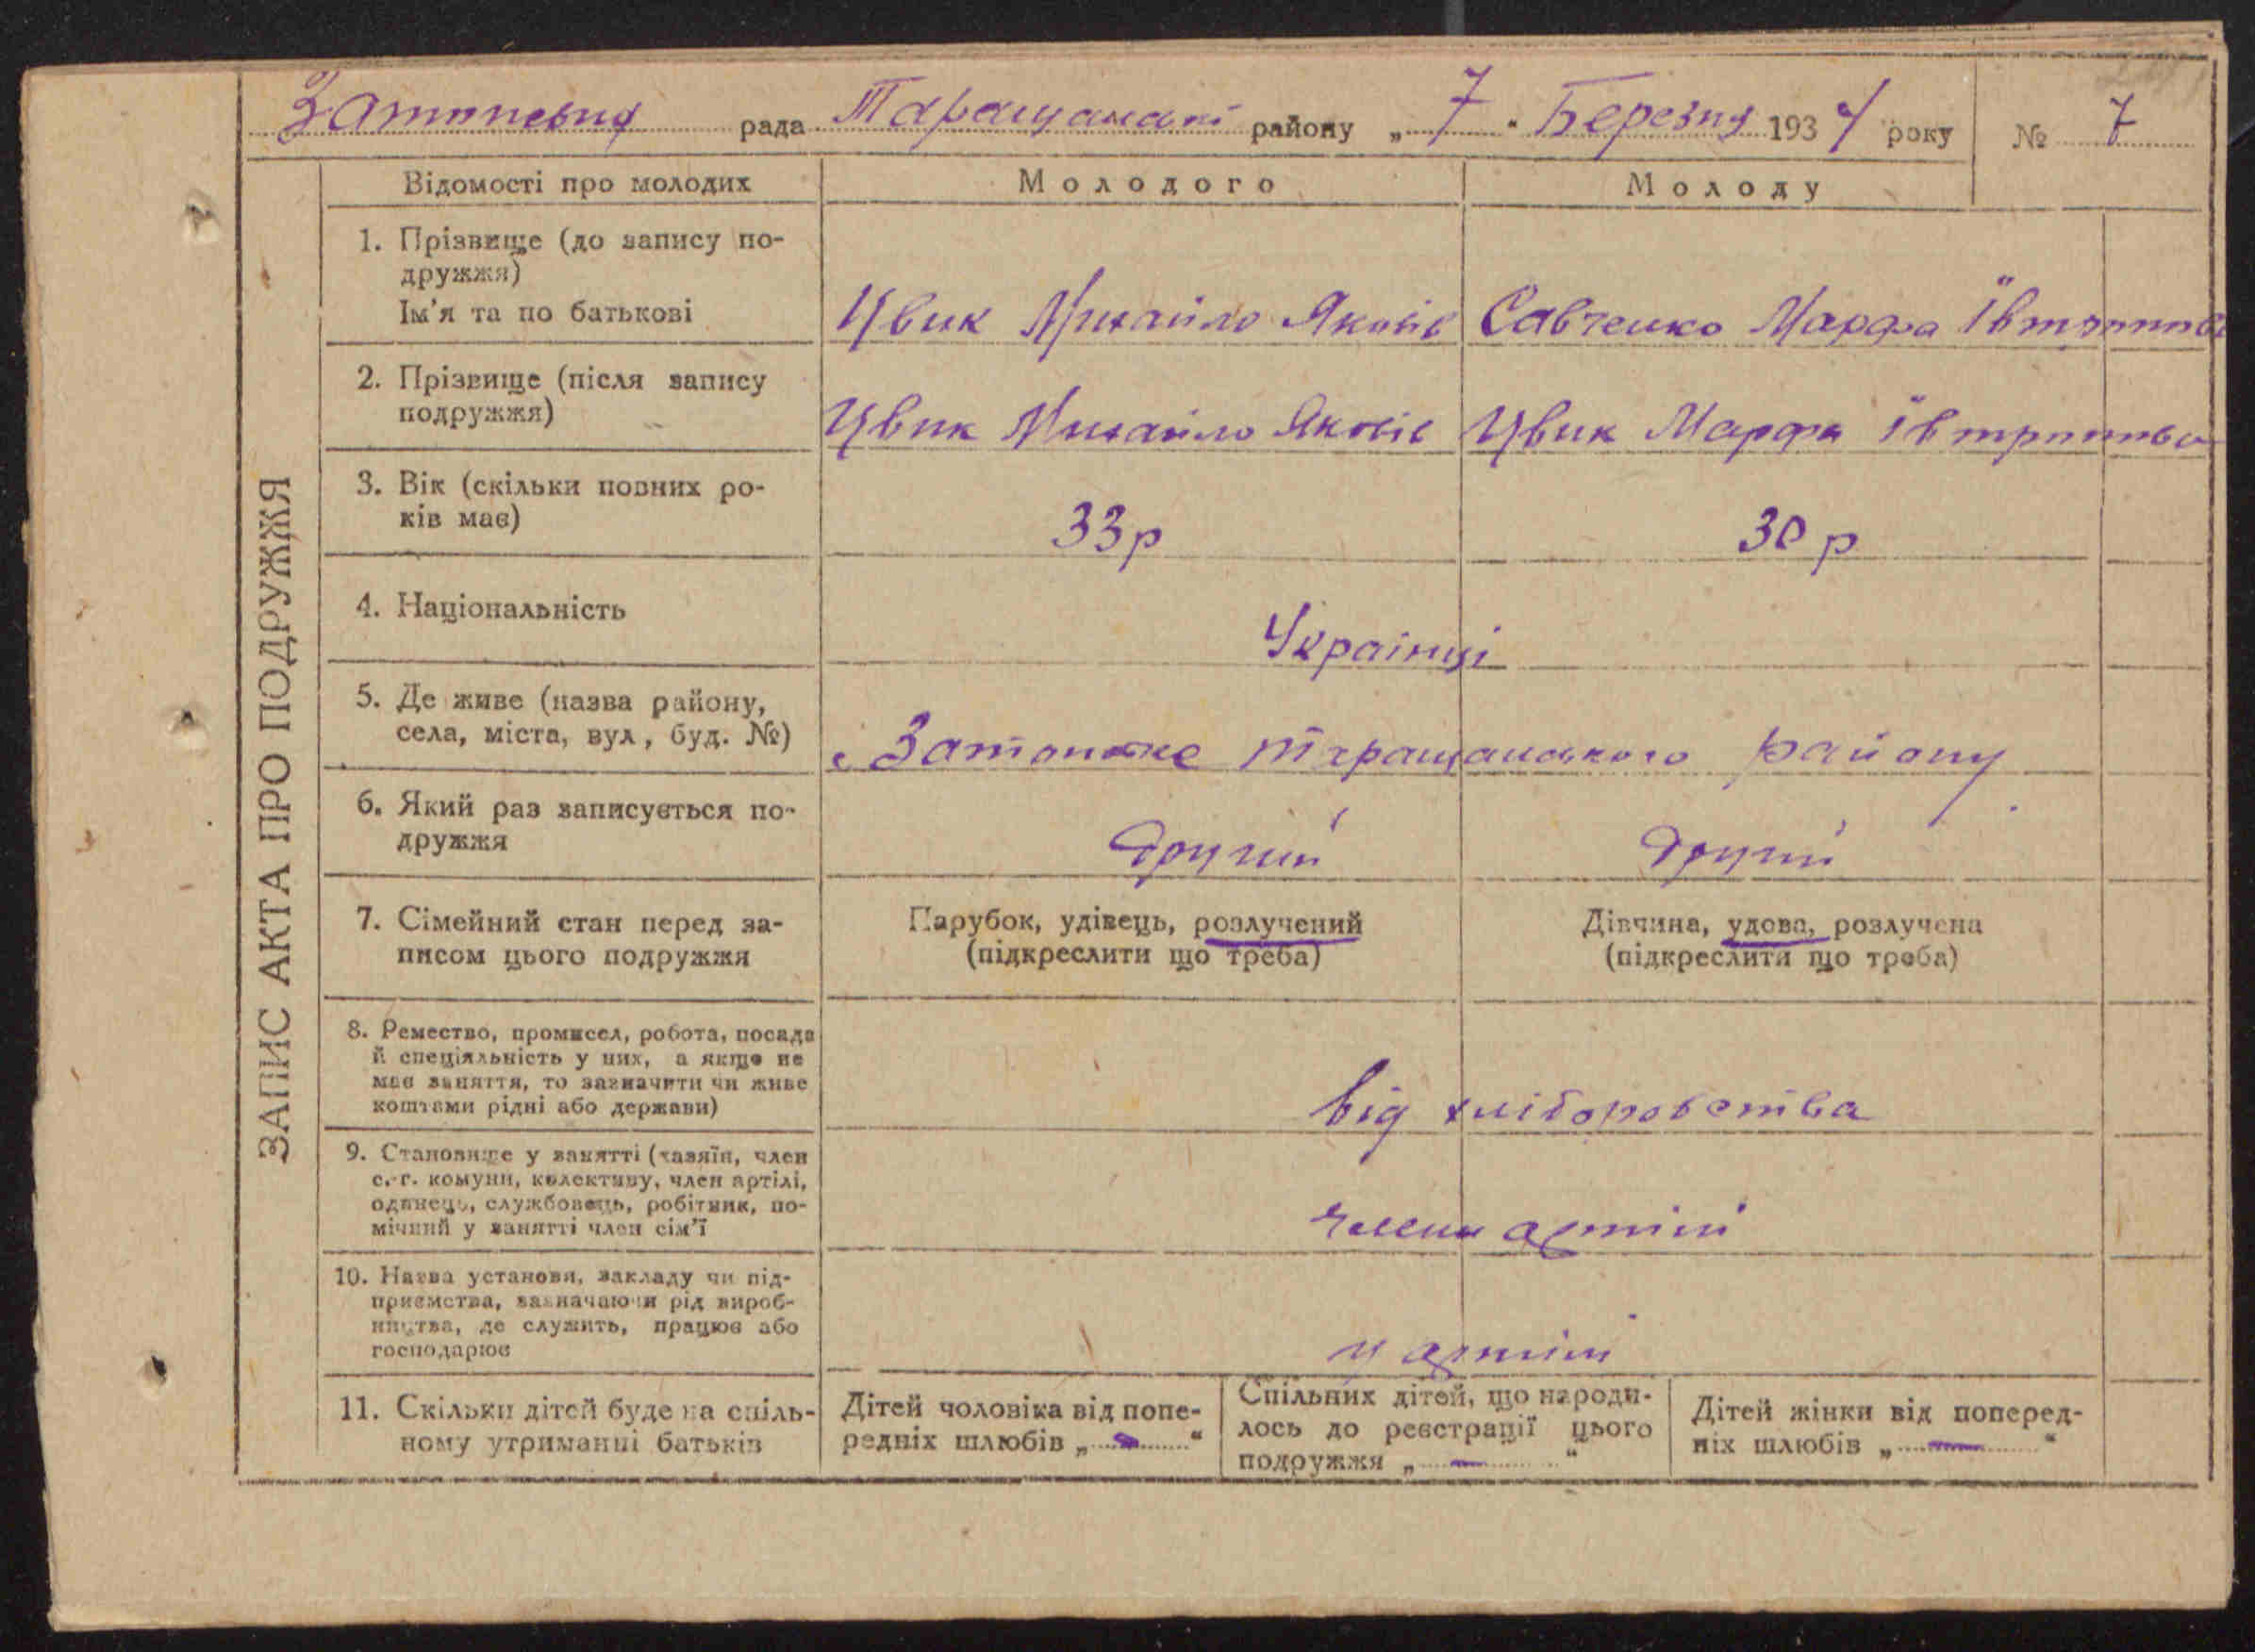 рада Таращанскі району „ 7 “ Березня 1934 року № 7
ЗАПИС АКТА ПРО ПОДРУЖЖЯ
Відомості про молодих
Молодого
Молоду
1. Прізвище (до запису по-
дружжя)
Ім'я та по батькові
Цвик Михайло Яковів
Савченко Марфа
2. Прізвище (після запису
подружжя)
Цвик Михайло Яковів
Цвик Марфа
3. Вік (скільки повних ро-
ків має)
33 р
30 р
4. Національність
Українці
5. Де живе (назва району,
села, міста, вул, буд. №)
с Затонске Таращанського району
6. Який раз записується по-
дружжя
другий
другий
7. Сімейний стан перед за-
писом цього подружжя
Парубок, удівець, розлучений
(підкреслити що треба)
Дівчина, удова, розлучена
(підкреслити що треба)
8. Ремество, промисел, робота, посада
й спеціяльність у них, а якщо не
має заняття, то зазначити чи живе
коштами рідні або держави)
від хліборобства
9. Становище у занятті (хазяїн, член
с.-г. комуни, колективу, член артілі,
одинець, службовець, робітник, по-
мічний у занятті член сім'ї
члени артілі
10. Назва установи, закладу чи під-
приємства, зазначаючи рід вироб-
ництва, де служить, працює або
господарює
у артілі
11. Скільки дітей буде на спіль-
ному утриманні батьків
Дітей чоловіка від попе-
редніх шлюбів „ — “
Спільних дітей, що народи-
лось до реєстрації цього
подружжя „ — “
Дітей жінки від поперед-
ніх шлюбів „ — “